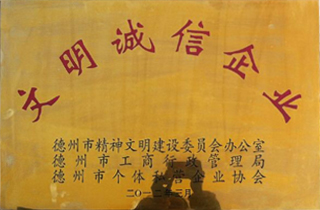 文明诚信企业
德州市精神文明建设委员会办公室
德州市工商行政管理局
德州市个体私营企业协会
二〇一二年元月